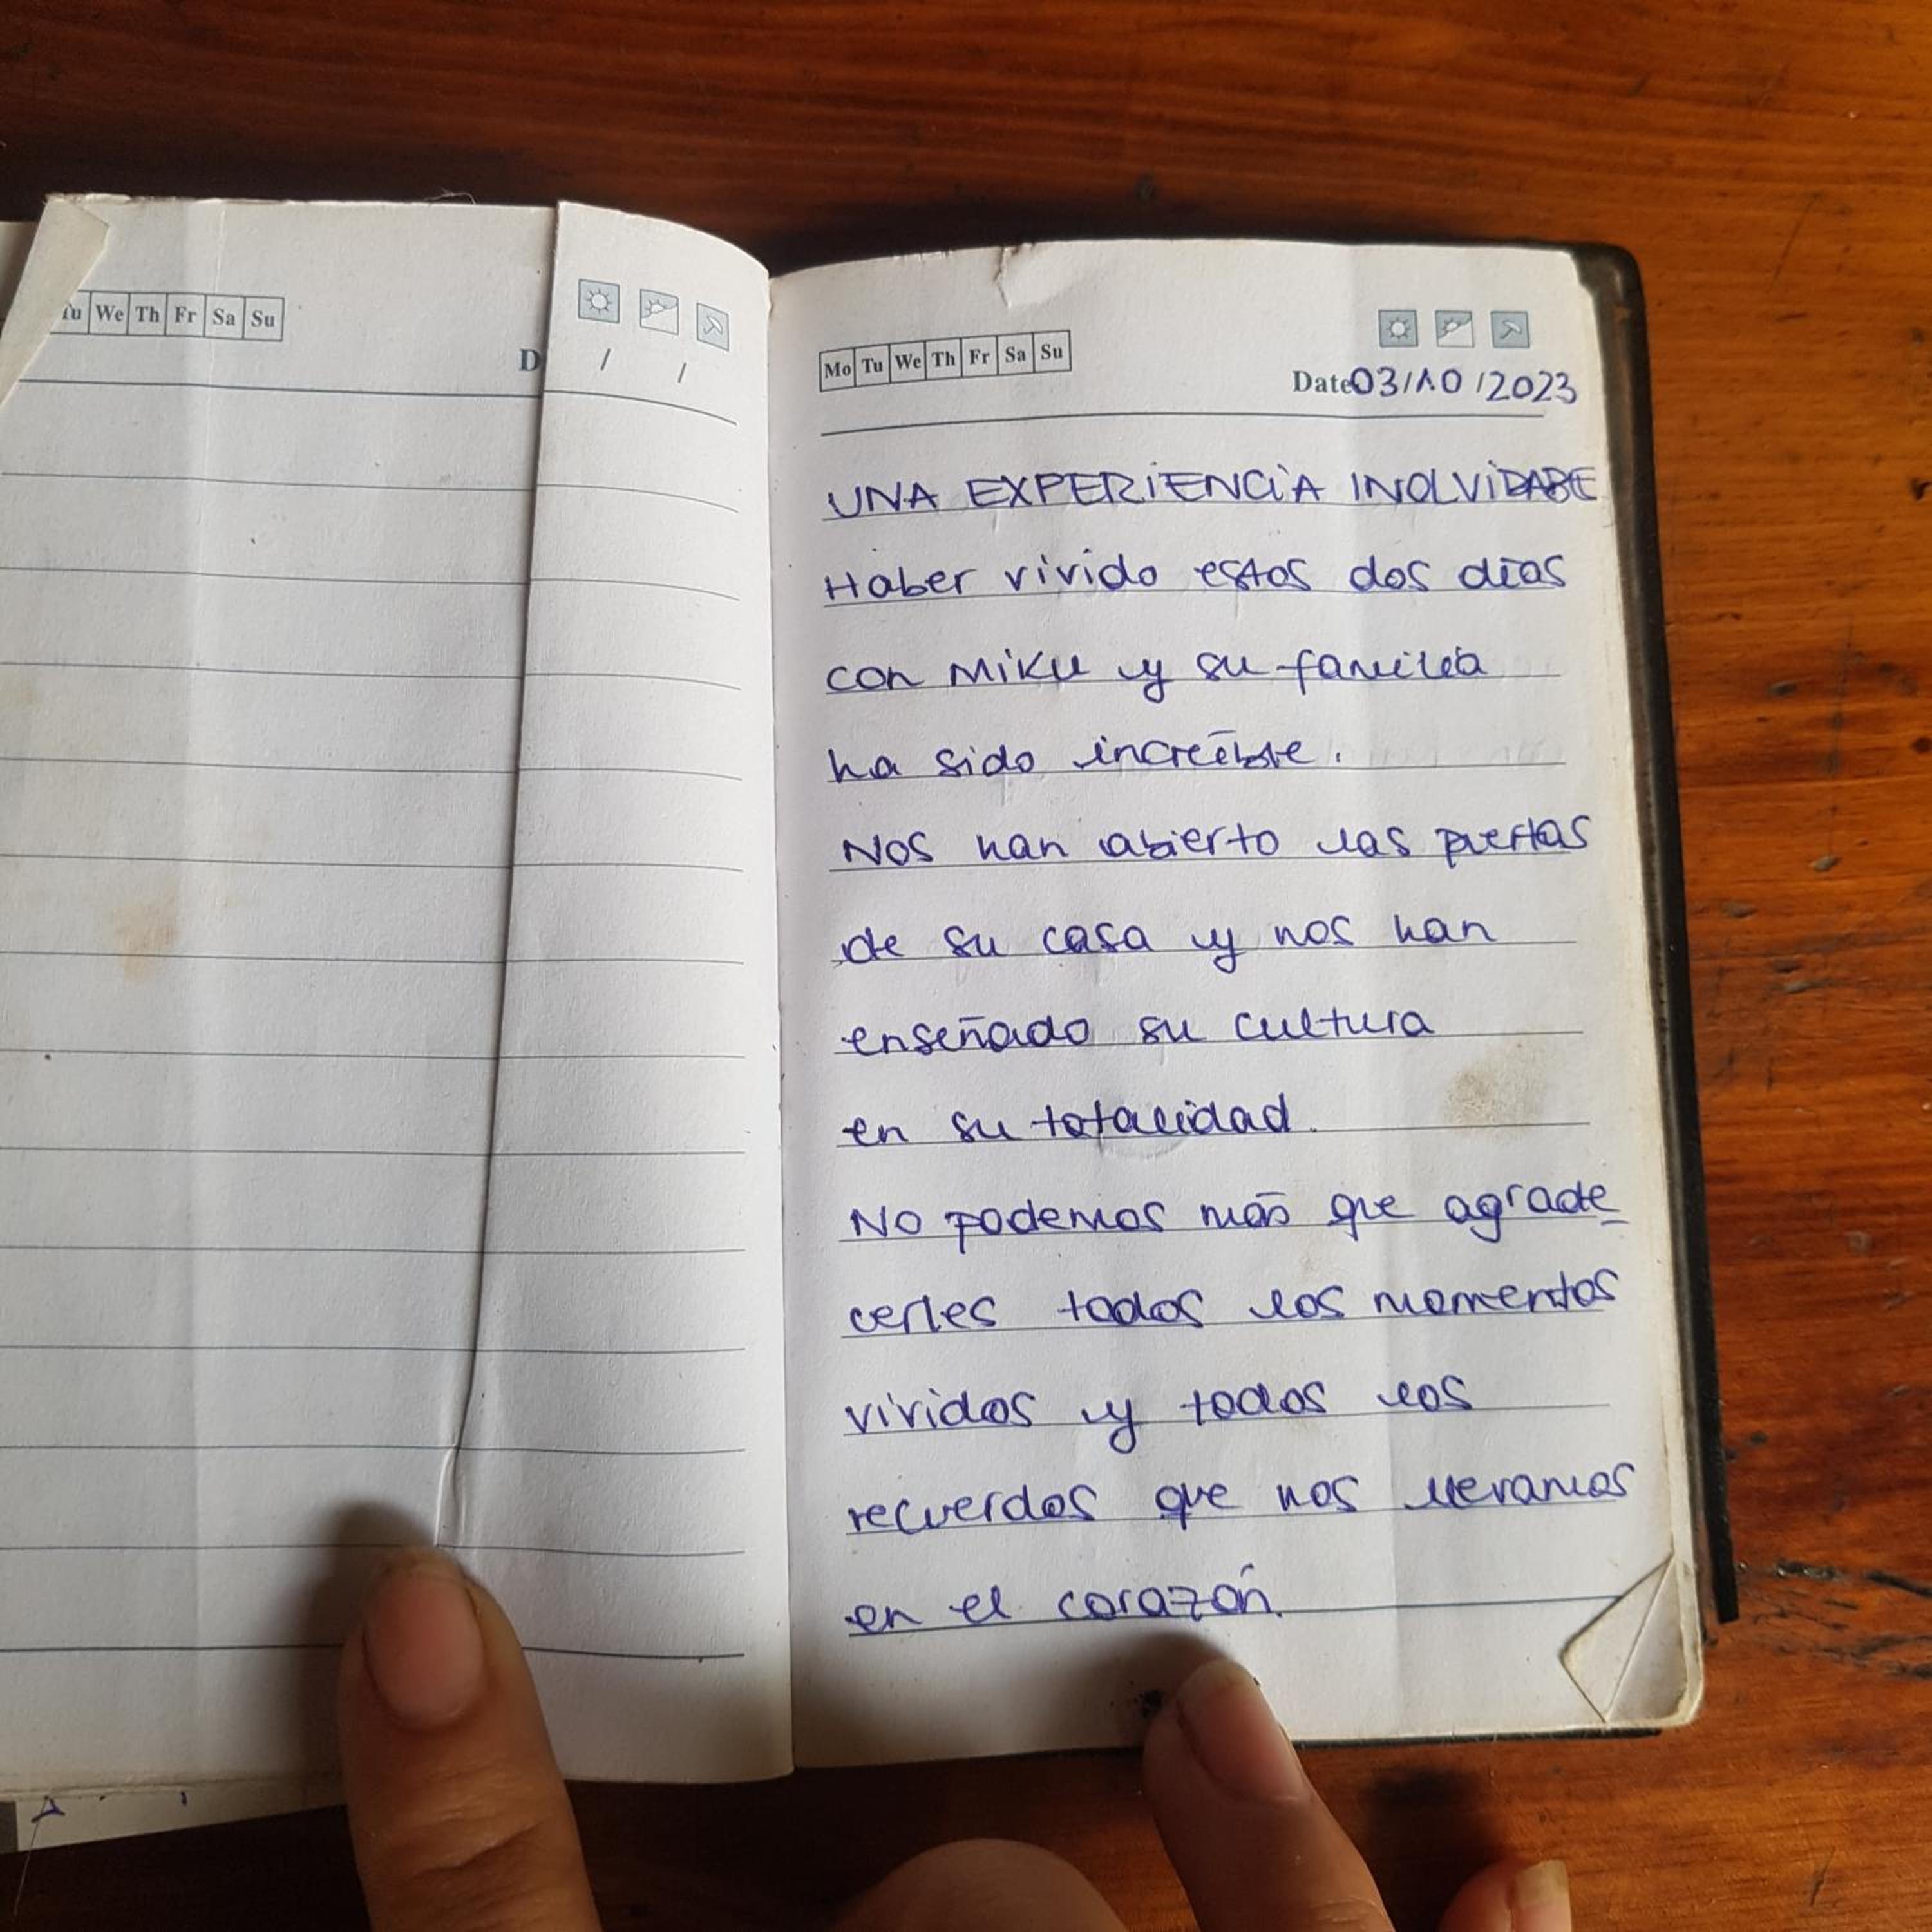 Tu We Th Fr Sa Su
D / /
Mo Tu We Th Fr Sa Su
Date 03/10/2023
UNA EXPERIENCIA INOLVIDABE
Haber vivido estos dos días
con Miku y su familia
ha sido increíble.
Nos han abierto las puertas
de su casa y nos han
enseñado su cultura
en su totalidad.
No podemos más que agrade_
cerles todos los momentos
vividos y todos los
recuerdos que nos llevamos
en el corazón.